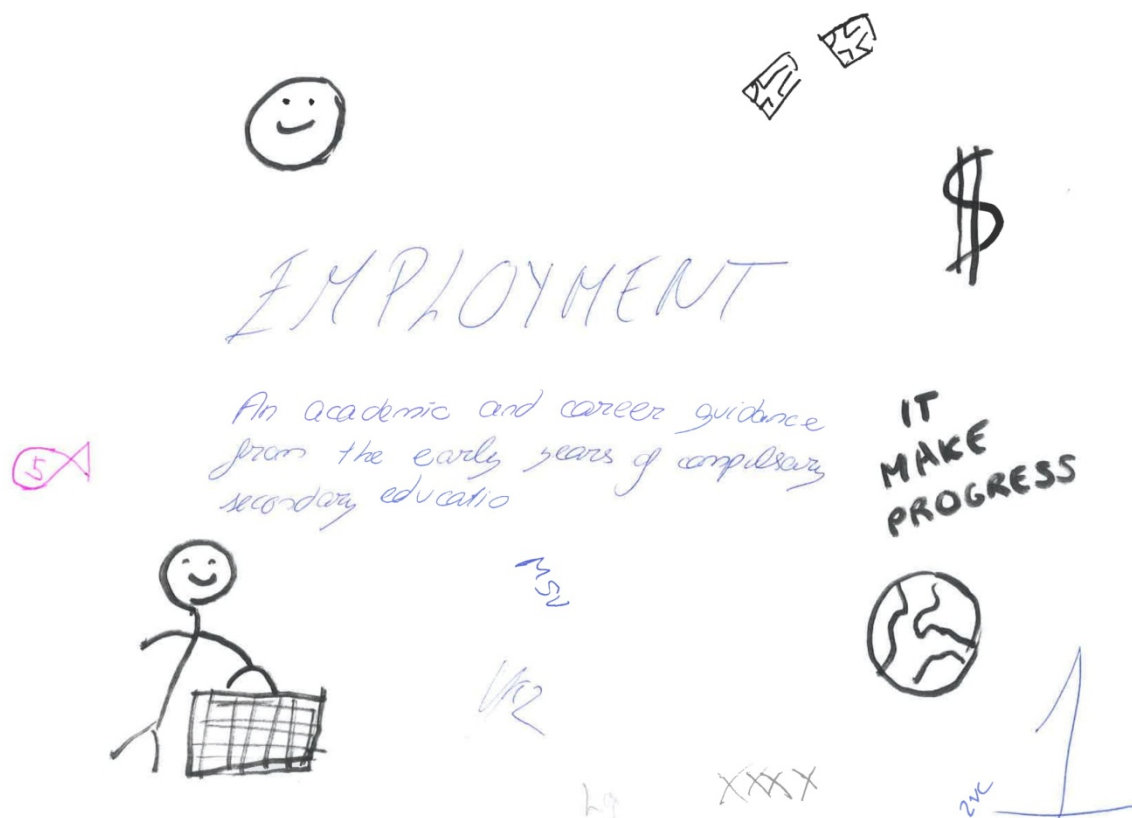 $
EMPLOYMENT
An academic and career guidance
from the early years of compulsory
secondary educatio
IT
MAKE
PROGRESS
5
MSV
XXXX
2VC
1